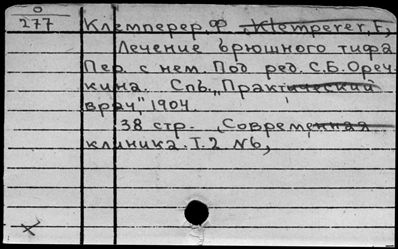 0
277
Клемперер, Ф. Klemperer, F,
Лечение брюшного тифа
Пер. с нем. Под ред. С.Б. Ореч-
кина. Спб., „Практический
врач", 1904.
38 стр. (Современная
клиника. Т.2 №6,